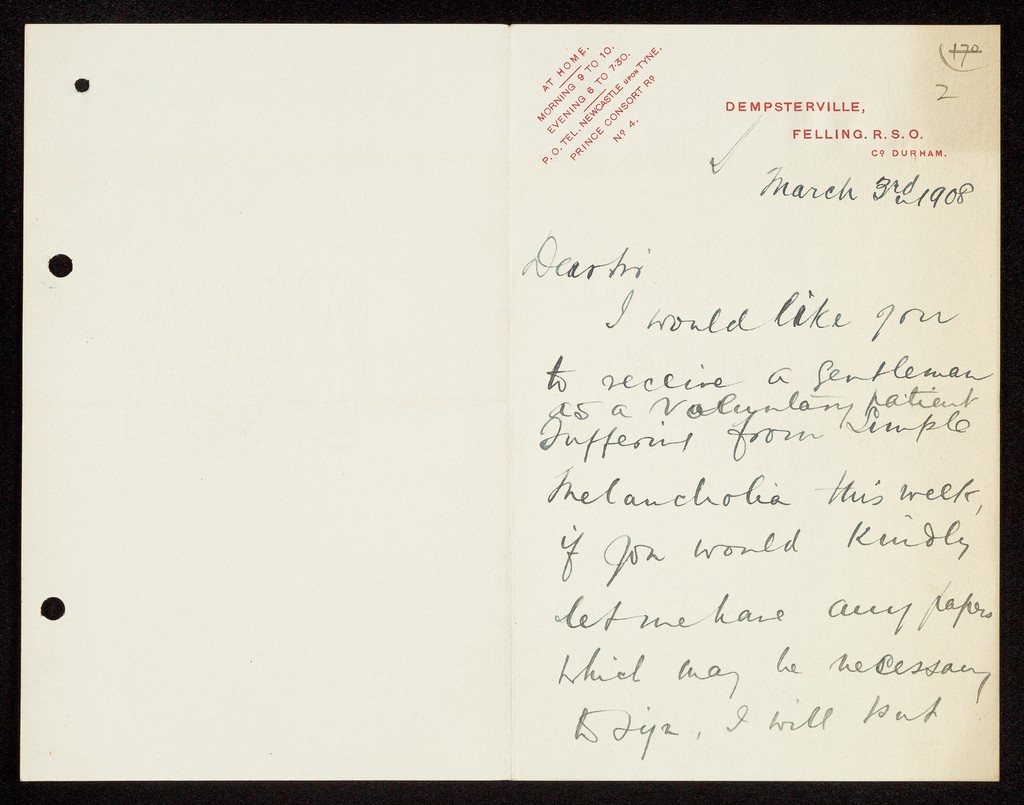 AT HOME.
MORNING 9 TO 10.
EVENING 6 TO 7·30.
P.O. TEL. NEWCASTLE UPON TYNE.
PRINCE CONSORT Rᴰ
Nº 4.
(170
2
DEMPSTERVILLE,
FELLING. R. S. O.
Cº DURHAM.
March 3rd 1908
Dear Sir
I would like you
to receive a gentleman
as a Voluntary patient
suffering from Simple
Melancholia this week,
if you would Kindly
let me have any papers
which may be necessary
to sign, I will put